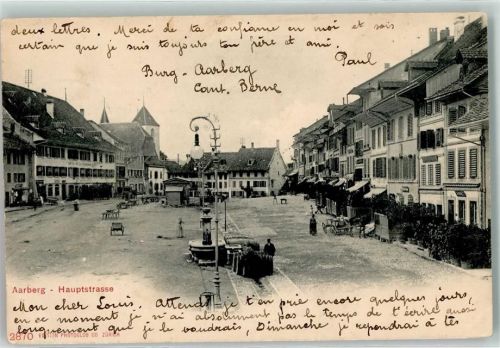 deux lettres. Merci de ta confiance en moi et sois
certain que je suis toujours ton frère et ami.
Paul
Burg - Aarberg
Cant. Berne
Aarberg - Hauptstrasse
Mon cher Louis. Attends je t'en prie encore quelques jours,
en ce moment je n'ai absolument pas le temps de t'écrire aussi
longuement que je le voudrais, Dimanche je repondrai à tes
2870 EDITION PHOTOGLOB CO. ZÜRICH